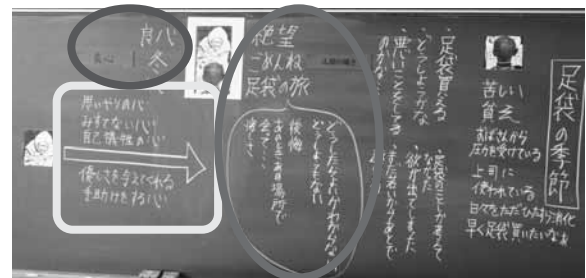 足袋の季節
苦しい
貧乏
おばさんから
圧力を受けている
上司に
使われている
日々をただひたすら消化
早く足袋買いたいなあ
・足袋買える
・どうしようかな
・悪いことをしてる
のかな…
・足袋のことしか考えて
なかった
・欲が出てしまった
絶望
ごめんね
足袋の旅
どうしたらよいかわからない
どうしようもない
後悔
あのときあの場所で
会って…
悔しさ
良心
思いやりの心
みすてない心
自己犠牲の心
優しさを与えてくれる
手助けをする心